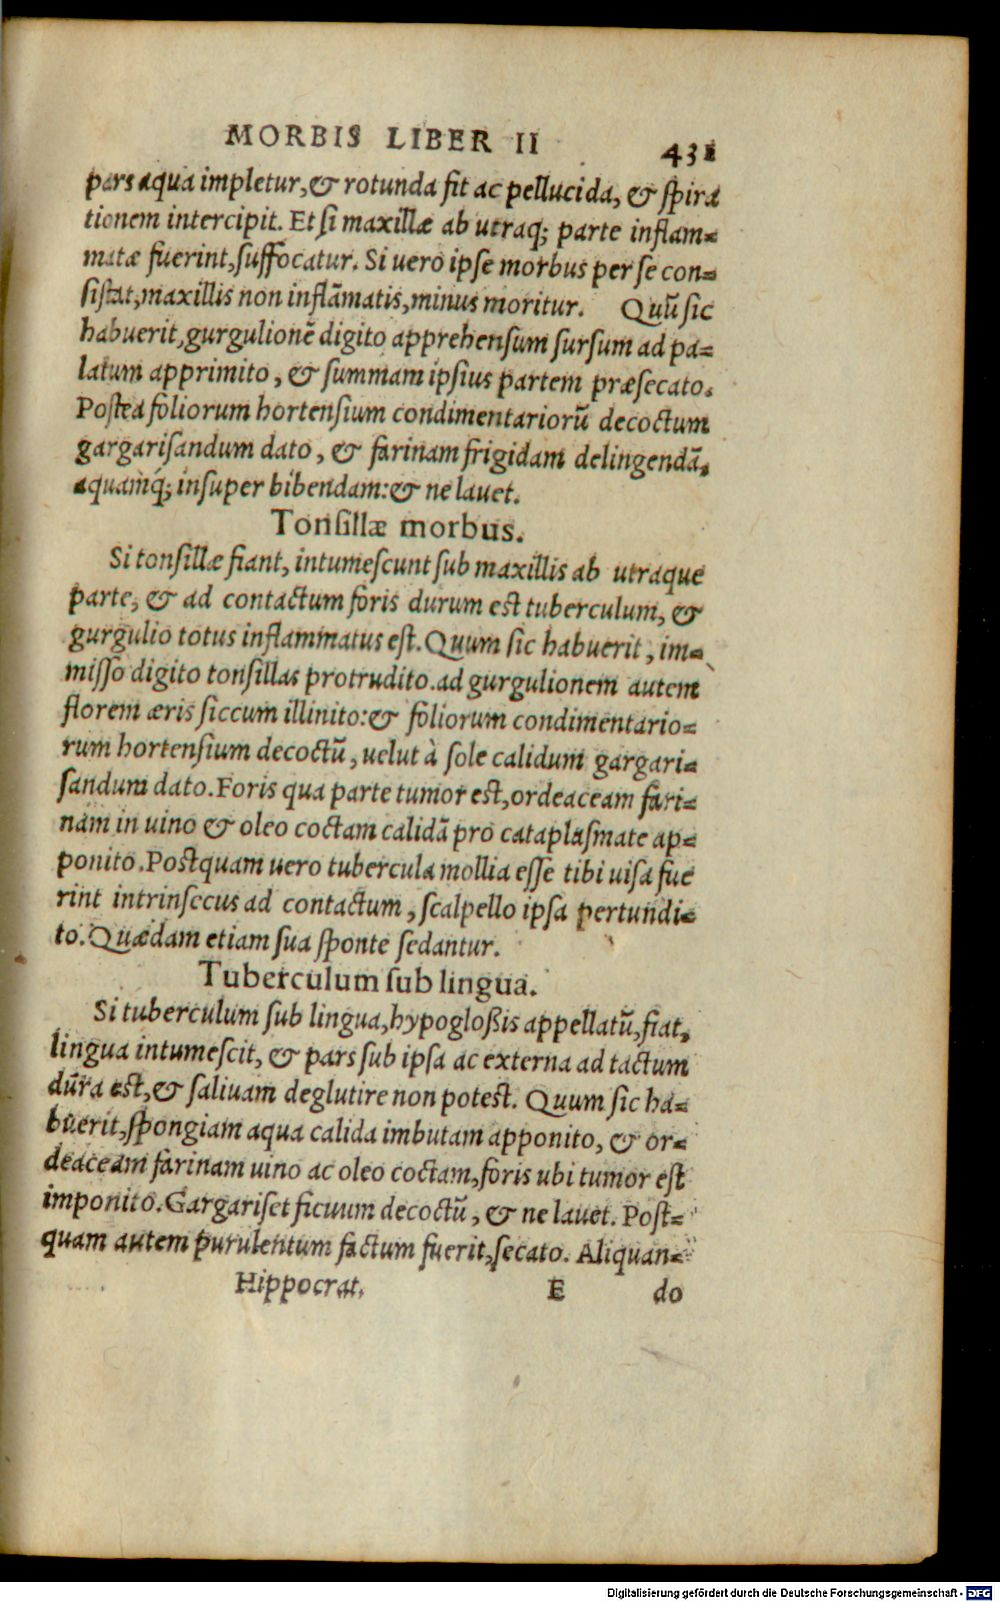 MORBIS LIBER II 431
pars aqua impletur, & rotunda fit ac pellucida, & ſpira
tionem intercipit. Et ſi maxillæ ab utraq; parte inflam-
matæ fuerint, ſuffocatur. Si uero ipſe morbus per ſe con-
ſiſtat, maxillis non inflãmatis, minus moritur. Quũ ſic
habuerit, gurgulionẽ digito apprehenſum ſurſum ad pa-
latum apprimito, & ſummam ipſius partem præſecato.
Poſtea foliorum hortenſium condimentariorũ decoctum
gargariſandum dato, & farinam frigidam delingendã,
aquamq́; inſuper bibendam: & ne lauet.
Tonſillæ morbus.
Si tonſillæ fiant, intumeſcunt ſub maxillis ab utraque
parte, & ad contactum foris durum eſt tuberculum, &
gurgulio totus inflammatus eſt. Quum ſic habuerit, im-
miſſo digito tonſillas protrudito. ad gurgulionem autem
florem æris ſiccum illinito: & foliorum condimentario-
rum hortenſium decoctũ, uelut à ſole calidum gargari-
ſandum dato. Foris qua parte tumor eſt, ordeaceam fari-
nam in uino & oleo coctam calidã pro cataplaſmate ap-
ponito. Poſtquam uero tubercula mollia eſſe tibi uiſa fue
rint intrinſecus ad contactum, ſcalpello ipſa pertundi-
to. Quædam etiam ſua ſponte ſedantur.
Tuberculum ſub lingua.
Si tuberculum ſub lingua, hypogloßis appellatũ, fiat,
lingua intumeſcit, & pars ſub ipſa ac externa ad tactum
dura eſt, & ſaliuam deglutire non poteſt. Quum ſic ha-
buerit, ſpongiam aqua calida imbutam apponito, & or-
deaceam farinam uino ac oleo coctam, foris ubi tumor eſt
imponito. Gargariſet ficuum decoctũ, & ne lauet. Poſt-
quam autem purulentum factum fuerit, ſecato. Aliquan-
Hippocrat. E do
Digitalisierung gefördert durch die Deutsche Forschungsgemeinschaft - DFG